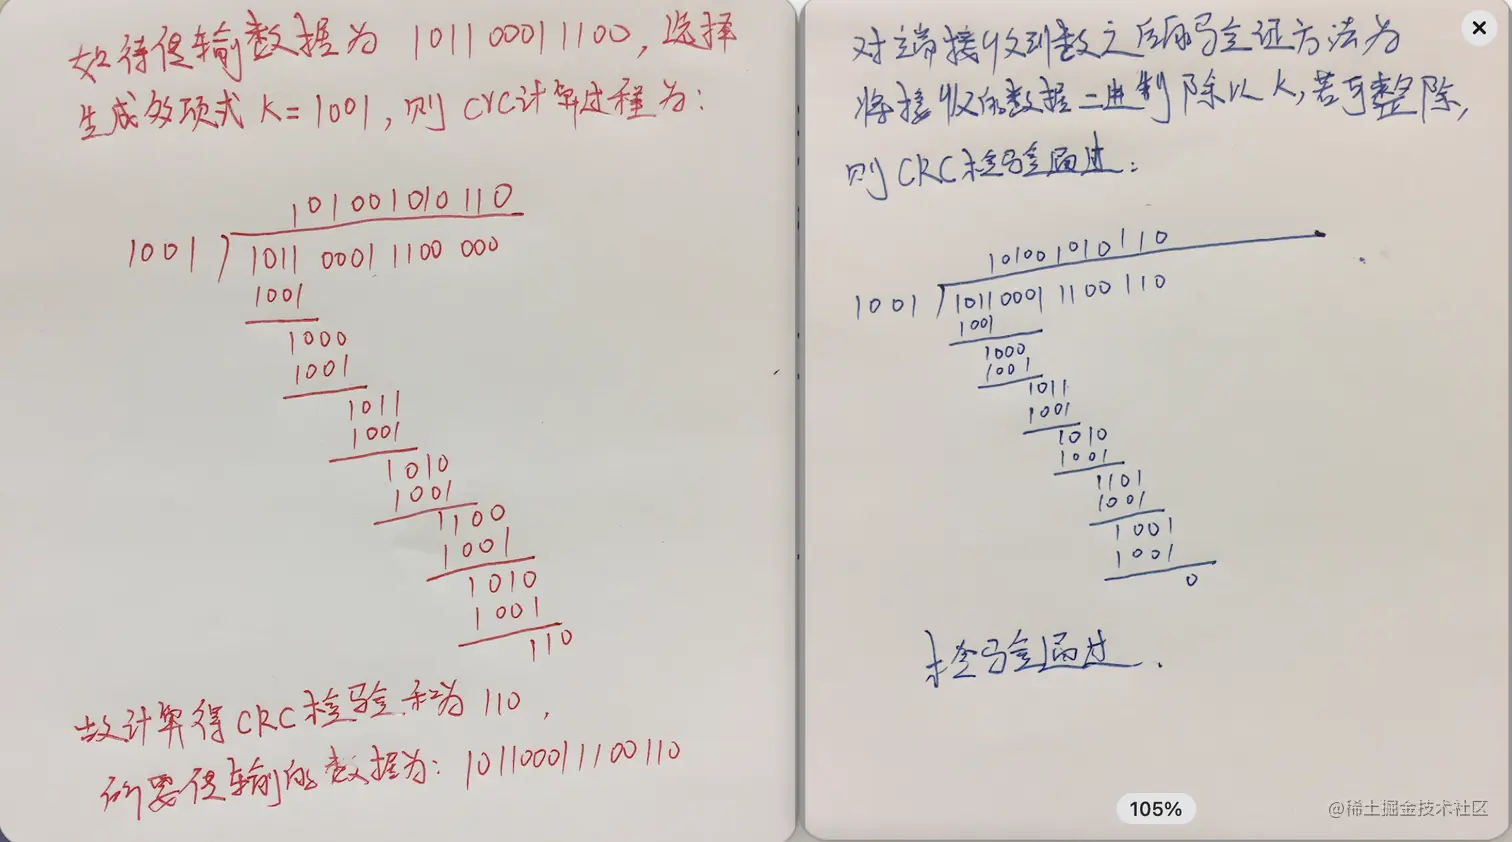 如待传输数据为 101100011100, 选择
生成多项式 K=1001, 则 CYC计算过程为:
101001010110
1001
1011 0001 1100 000
1001
1000
1001
1011
1001
1010
1001
1100
1001
1010
1001
110
故计算得CRC检验和为 110,
所要传输的数据为: 101100011100110
对端接收到数之后的验证方法为
将接收的数据二进制除以K,若可整除,
则CRC检验通过:
101001010110
1001
1011 0001 1100 110
1001
1000
1001
1011
1001
1010
1001
1101
1001
1001
1001
0
检验通过.
105%
@稀土掘金技术社区